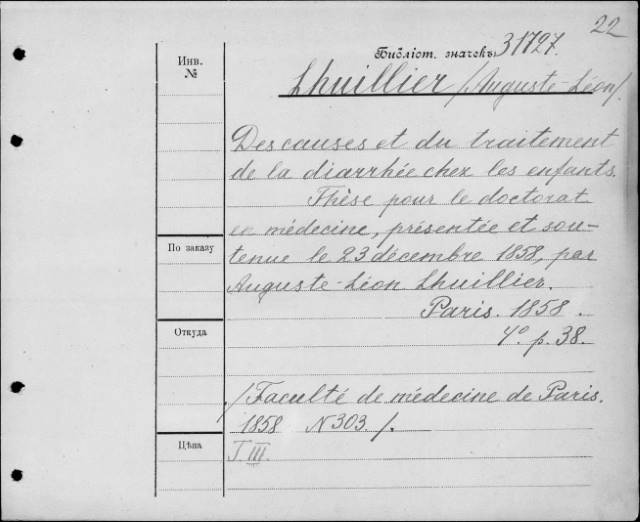 22
Инв.
№
Библіот. значекъ 31727.
Lhuillier /Auguste-Léon/.
Des causes et du traitement
de la diarrhée chez les enfants.
Thèse pour le doctorat
en médecine, présentée et sou-
По заказу
tenue le 23 décembre 1858, par
Auguste-Léon Lhuillier.
Paris. 1858.
Откуда
4º. p. 38.
/Faculté de médecine de Paris.
1858 N 303./.
Цѣна
T. III.